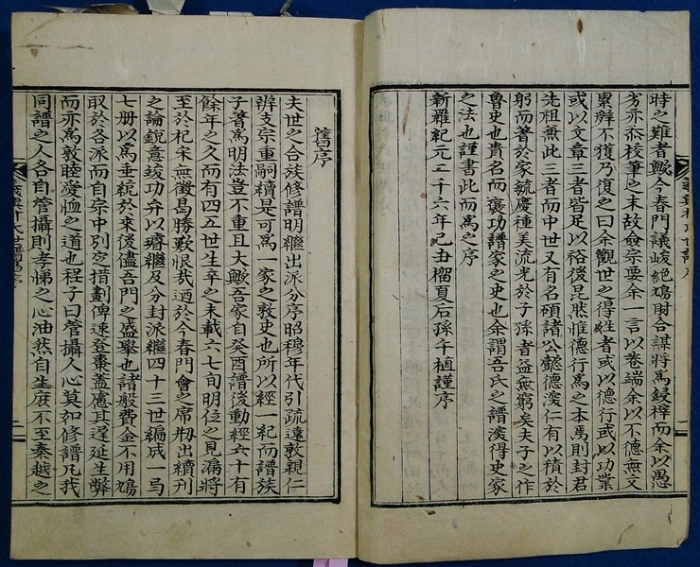 時之難者歟今春門議峻絶鳩財合謀將爲鋟梓而余以愚
劣亦忝校筆之末故僉宗要余一言以卷端余以不德無文
累辭不獲乃復之曰余觀世之得姓者或以德行或以功業
或以文章三者皆足以裕後昆然惟德行爲之本焉則封君
先祖兼此三者而中世又有名碩諸公懿德深仁有以積於
躬而著於家毓慶種美流光於子孫者益無窮矣夫子之作
魯史也貴名而褒功譜家之史也余謂吾氏之譜深得史家
之法也謹書此而爲之序
新羅紀元二千六年己丑榴夏后孫千植謹序
舊序
夫世之合族修譜明繼出派分序昭穆年代引疏遠敦親仁
辨支宗重嗣續是可爲一家之敦史也所以經一紀而譜族
子著爲明法豈不重且大歟吾家自癸酉譜後動經六十有
餘年之久而有四五世生卒之未載六七旬明位之見漏將
至於杞宋無徵曷勝歎恨哉迺於今春門會之席刱出續刊
之論銳意竣功弁以璿繼及分封派繼四十三世編成一弓
七冊以爲垂統於來後儘吾門之盛擧也諸般費金不用鳩
取於各派而自宗中別措劃俾速登棗蓋慮其遲延生弊
而亦爲敦睦愛恤之道也程子曰管攝人心莫如修譜凡我
同譜之人各自管攝則孝悌之心油然自生庶不至秦越之